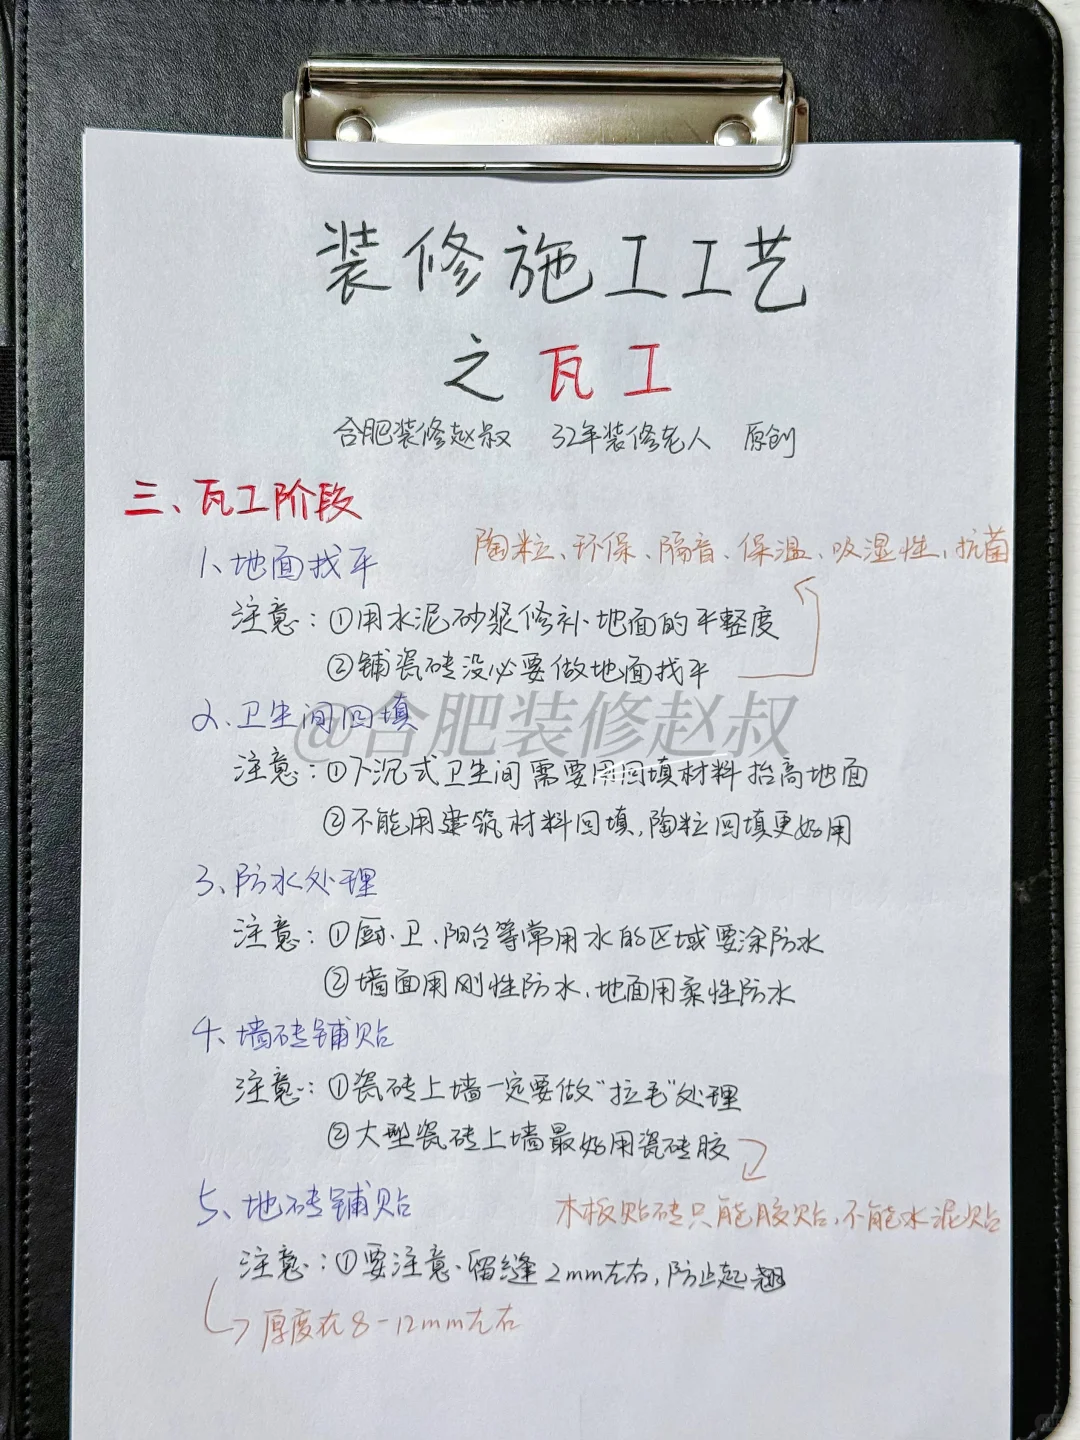 装修施工工艺
之瓦工
合肥装修赵叔 32年装修老人 原创
三、瓦工阶段
1、地面找平
陶粒、环保、隔音、保温、吸湿性、抗菌
注意：①用水泥砂浆修补地面的平轻度
②铺瓷砖没必要做地面找平
@合肥装修赵叔
2、卫生间回填
注意：①下沉式卫生间需要用回填材料抬高地面
②不能用建筑材料回填，陶粒回填更好用
3、防水处理
注意：①厨、卫、阳台等常用水的区域要涂防水
②墙面用刚性防水、地面用柔性防水
4、墙砖铺贴
注意：①瓷砖上墙一定要做“拉毛”处理
②大型瓷砖上墙最好用瓷砖胶
5、地砖铺贴
木板贴砖只能胶贴，不能水泥贴
注意：①要注意留缝2mm左右，防止起翘
厚度在8-12mm左右